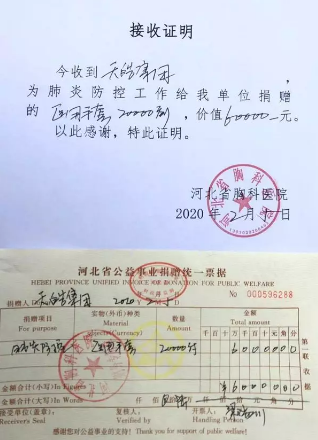 接收证明
今收到天皓集团，
为肺炎防控工作给我单位捐赠
的医用手套20000副，价值60000元。
以此感谢，特此证明。
河北省胸科医院
2020年2月 日
河北省公益事业捐赠统一票据
HEBEI PROVINCE UNIFIED INVOICE OF DONATION FOR PUBLIC WELFARE
捐赠人 天皓集团 2020 2 No 000596288
捐赠项目 实物(外币)种类 数量 金额
For purpose Material (Currency) Amount Total amount
千百十万千百十元角分
医用手套 20000 6000000
第二联 收据
金额合计(小写)In Figures ¥6000000
金额合计(大写)In Words
接受单位(盖章) 复核人 开票人
Receiver's Seal Verified by Handling Person
感谢您对公益事业的支持！Thank you for support of public welfare!